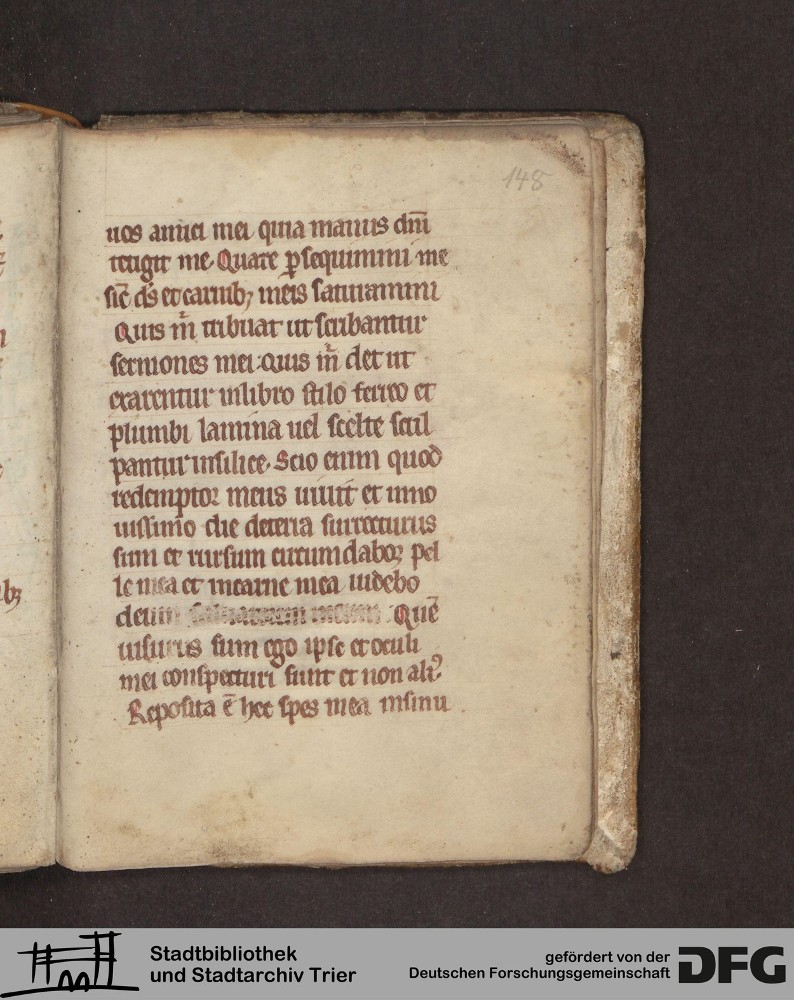 148
uos amici mei quia manus dñi
tetigit me. Quare ꝑsequimini me
sic̄ ds̄ et carnibꝫ meis saturamini
Quis m̄ tribuat ut scribantur
sermones mei. Quis m̄ det ut
exarentur in libro stilo ferreo et
plumbi lamina uel scelte scul
pantur in silice. Scio enim quod
redemptor meus uiuit et inno
uissimo die deterra surrecturus
sum et rursum circumdaboꝛ pel
le mea et incarne mea uidebo
deum saluatorem meum. Quē
uisurus sum ego ipse et oculi
mei conspecturi sunt et non aliꝰ
Reposita ē hec spes mea insinu
bꝫ
Stadtbibliothek
und Stadtarchiv Trier
gefördert von der
Deutschen Forschungsgemeinschaft
DFG